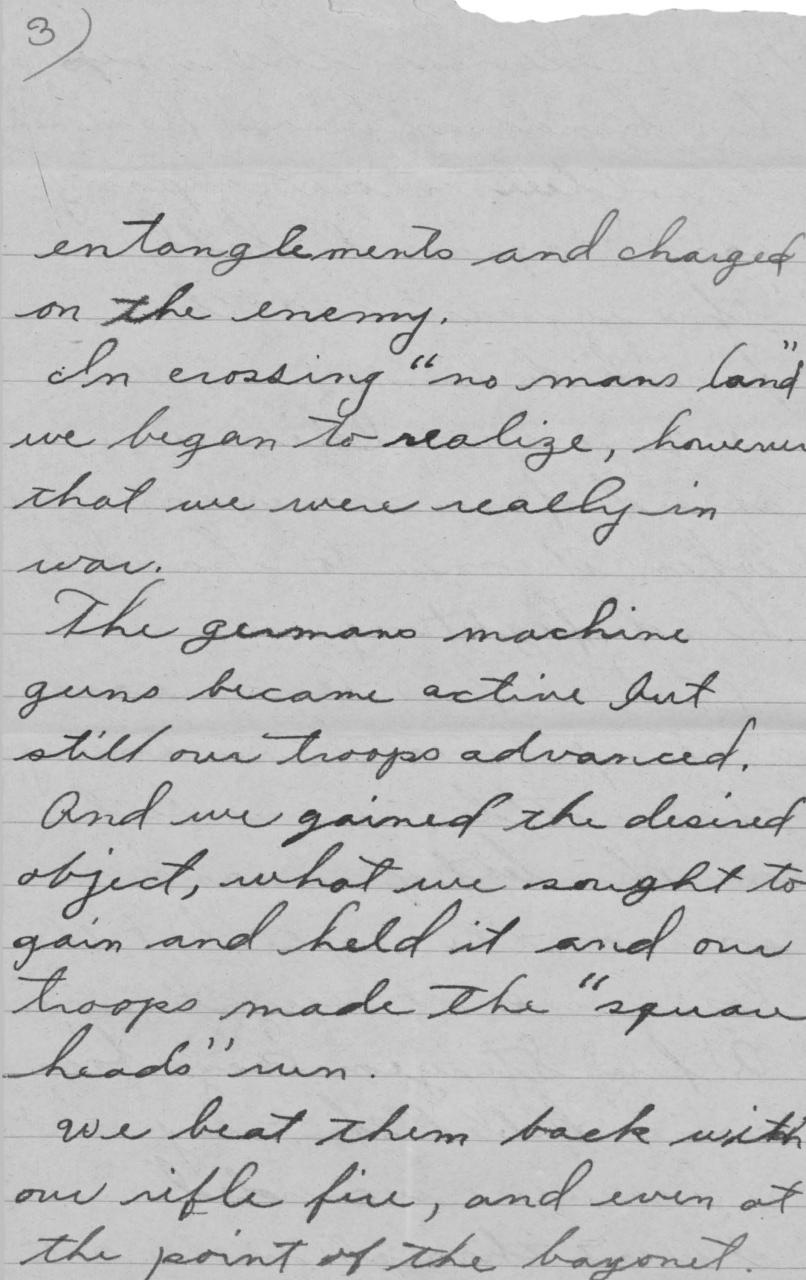 3)
entanglements and charged
on the enemy.
In crossing "no mans land"
we began to realize, however
that we were really in
war.
The germans machine
guns became active but
still our troops advanced.
And we gained the desired
object, what we sought to
gain and held it and our
troops made the "square
heads" run.
We beat them back with
our rifle fire, and even at
the point of the bayonet.